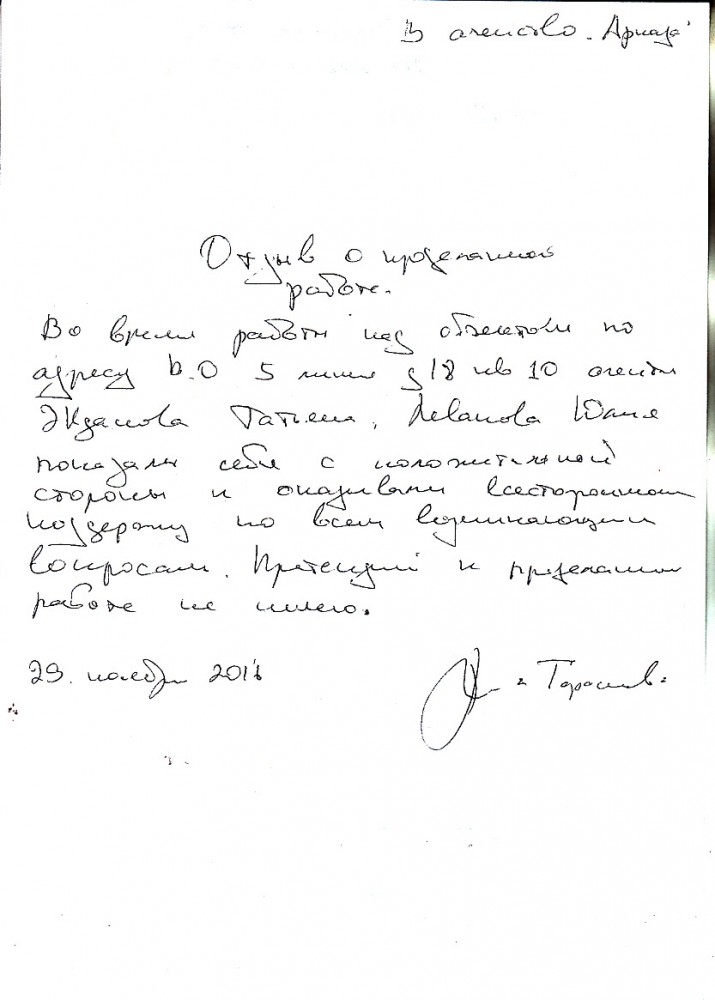 В агенство "
Отзыв о проделанной
работе.
Во время работы над объектом по
адресу В.О 5 линия д 18 кв 10 агенты
Жданова Татьяна, Иванова Юлия
показали себя с положительной
стороны и оказывали всестороннюю
поддержку по всем возникающим
вопросам. Претензий к проделанной
работе не имею.
29. ноября 201